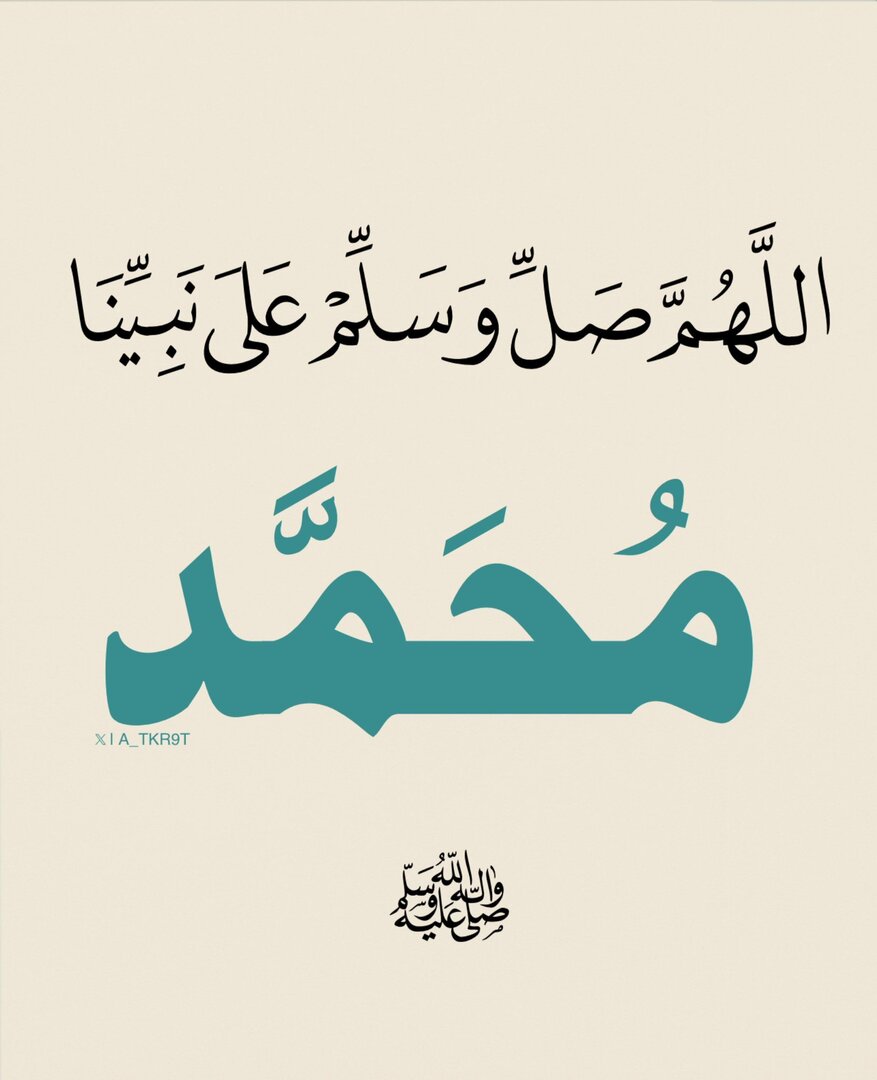 اللَّهُمَّ صَلِّ وَسَلِّمْ عَلَىَ نَبِيِّنَا
مُحَمَّد
𝕏 | A_TKR9T
صلى الله عليه واله وسلم